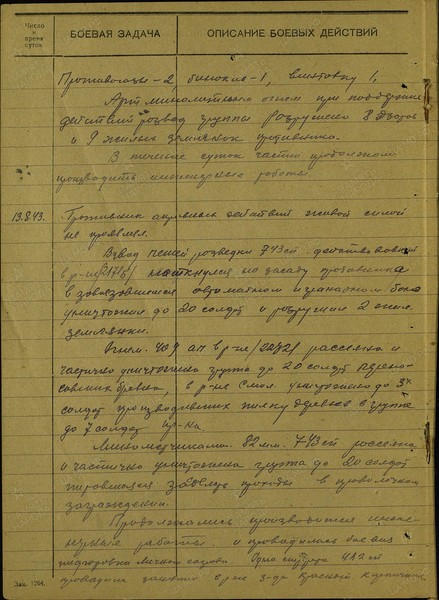 Число
и
время
суток
БОЕВАЯ ЗАДАЧА
ОПИСАНИЕ БОЕВЫХ ДЕЙСТВИЙ
Противогазы - 2, бинокль - 1, винтовку 1,
Арт минометным огнем при поддержке
действий развед группы разрушено 8
и 9 жилых землянок противника.
В течение суток части продолжали
производить инженерные работы.
13.8.43. Противник активных действий живой силой
не проявлял.
Взвод пешей разведки 743 сп действовавший
в р-не наткнулся на засаду противника
в завязавшемся автоматном и гранатном бою
уничтожил до 20 солдат и разрушил 2 жил.
землянки.
Огнем 409 ап в р-не рассеяна и
частично уничтожена группа до 20 солдат
бревна, в р-не уничтожено до 3х
солдат производивших пилку деревьев и группа
до 7 солдат пр-ка
Минометчиками 82 мм. 743 сп рассеяна
и частично уничтожена группа до 20 солдат
проходы в проволочном
заграждении.
Продолжались производится инже-
нерные работы и проводилась боевая
подготовка личного состава. 412 сп
проводила занятия в р-не з-да Красный кирпичник